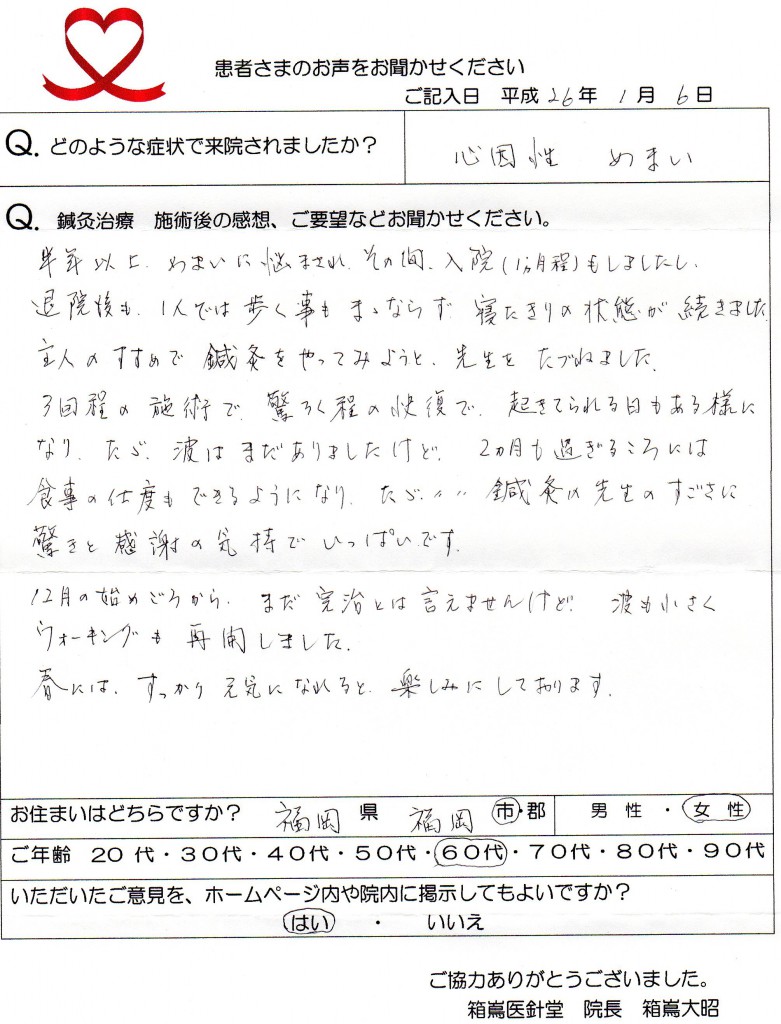 患者さまのお声をお聞かせください
ご記入日 平成26年 1月 6日
Q. どのような症状で来院されましたか？
心因性 めまい
Q. 鍼灸治療 施術後の感想、ご要望などお聞かせください。
半年以上、めまいに悩まされ、その間、入院(1ヶ月程)もしましたし、
退院後も、1人では歩く事もまゝならず、寝たきりの状態が続きました
主人のすすめで鍼灸をやってみようと、先生をたづねました。
3回程の施術で、驚ろく程の快復で、起きてられる日もある様に
なり、たゞ、波はまだありましたけど、2ヵ月も過ぎるころには
食事の仕度もできるようになり、たゞ〃〃 鍼灸の先生のすごさに
驚きと感謝の気持でいっぱいです。
12月の始めごろから、まだ完治とは言えませんけど、波も小さく
ウォーキングも再開しました。
春には、すっかり元気になれると、楽しみにしております。
お住まいはどちらですか？ 福岡 県 福岡 市・郡 男性・女性
ご年齢 20代・30代・40代・50代・60代・70代・80代・90代
いただいたご意見を、ホームページ内や院内に掲示してもよいですか？
はい ・ いいえ
ご協力ありがとうございました。
箱嶌医針堂 院長 箱嶌大昭